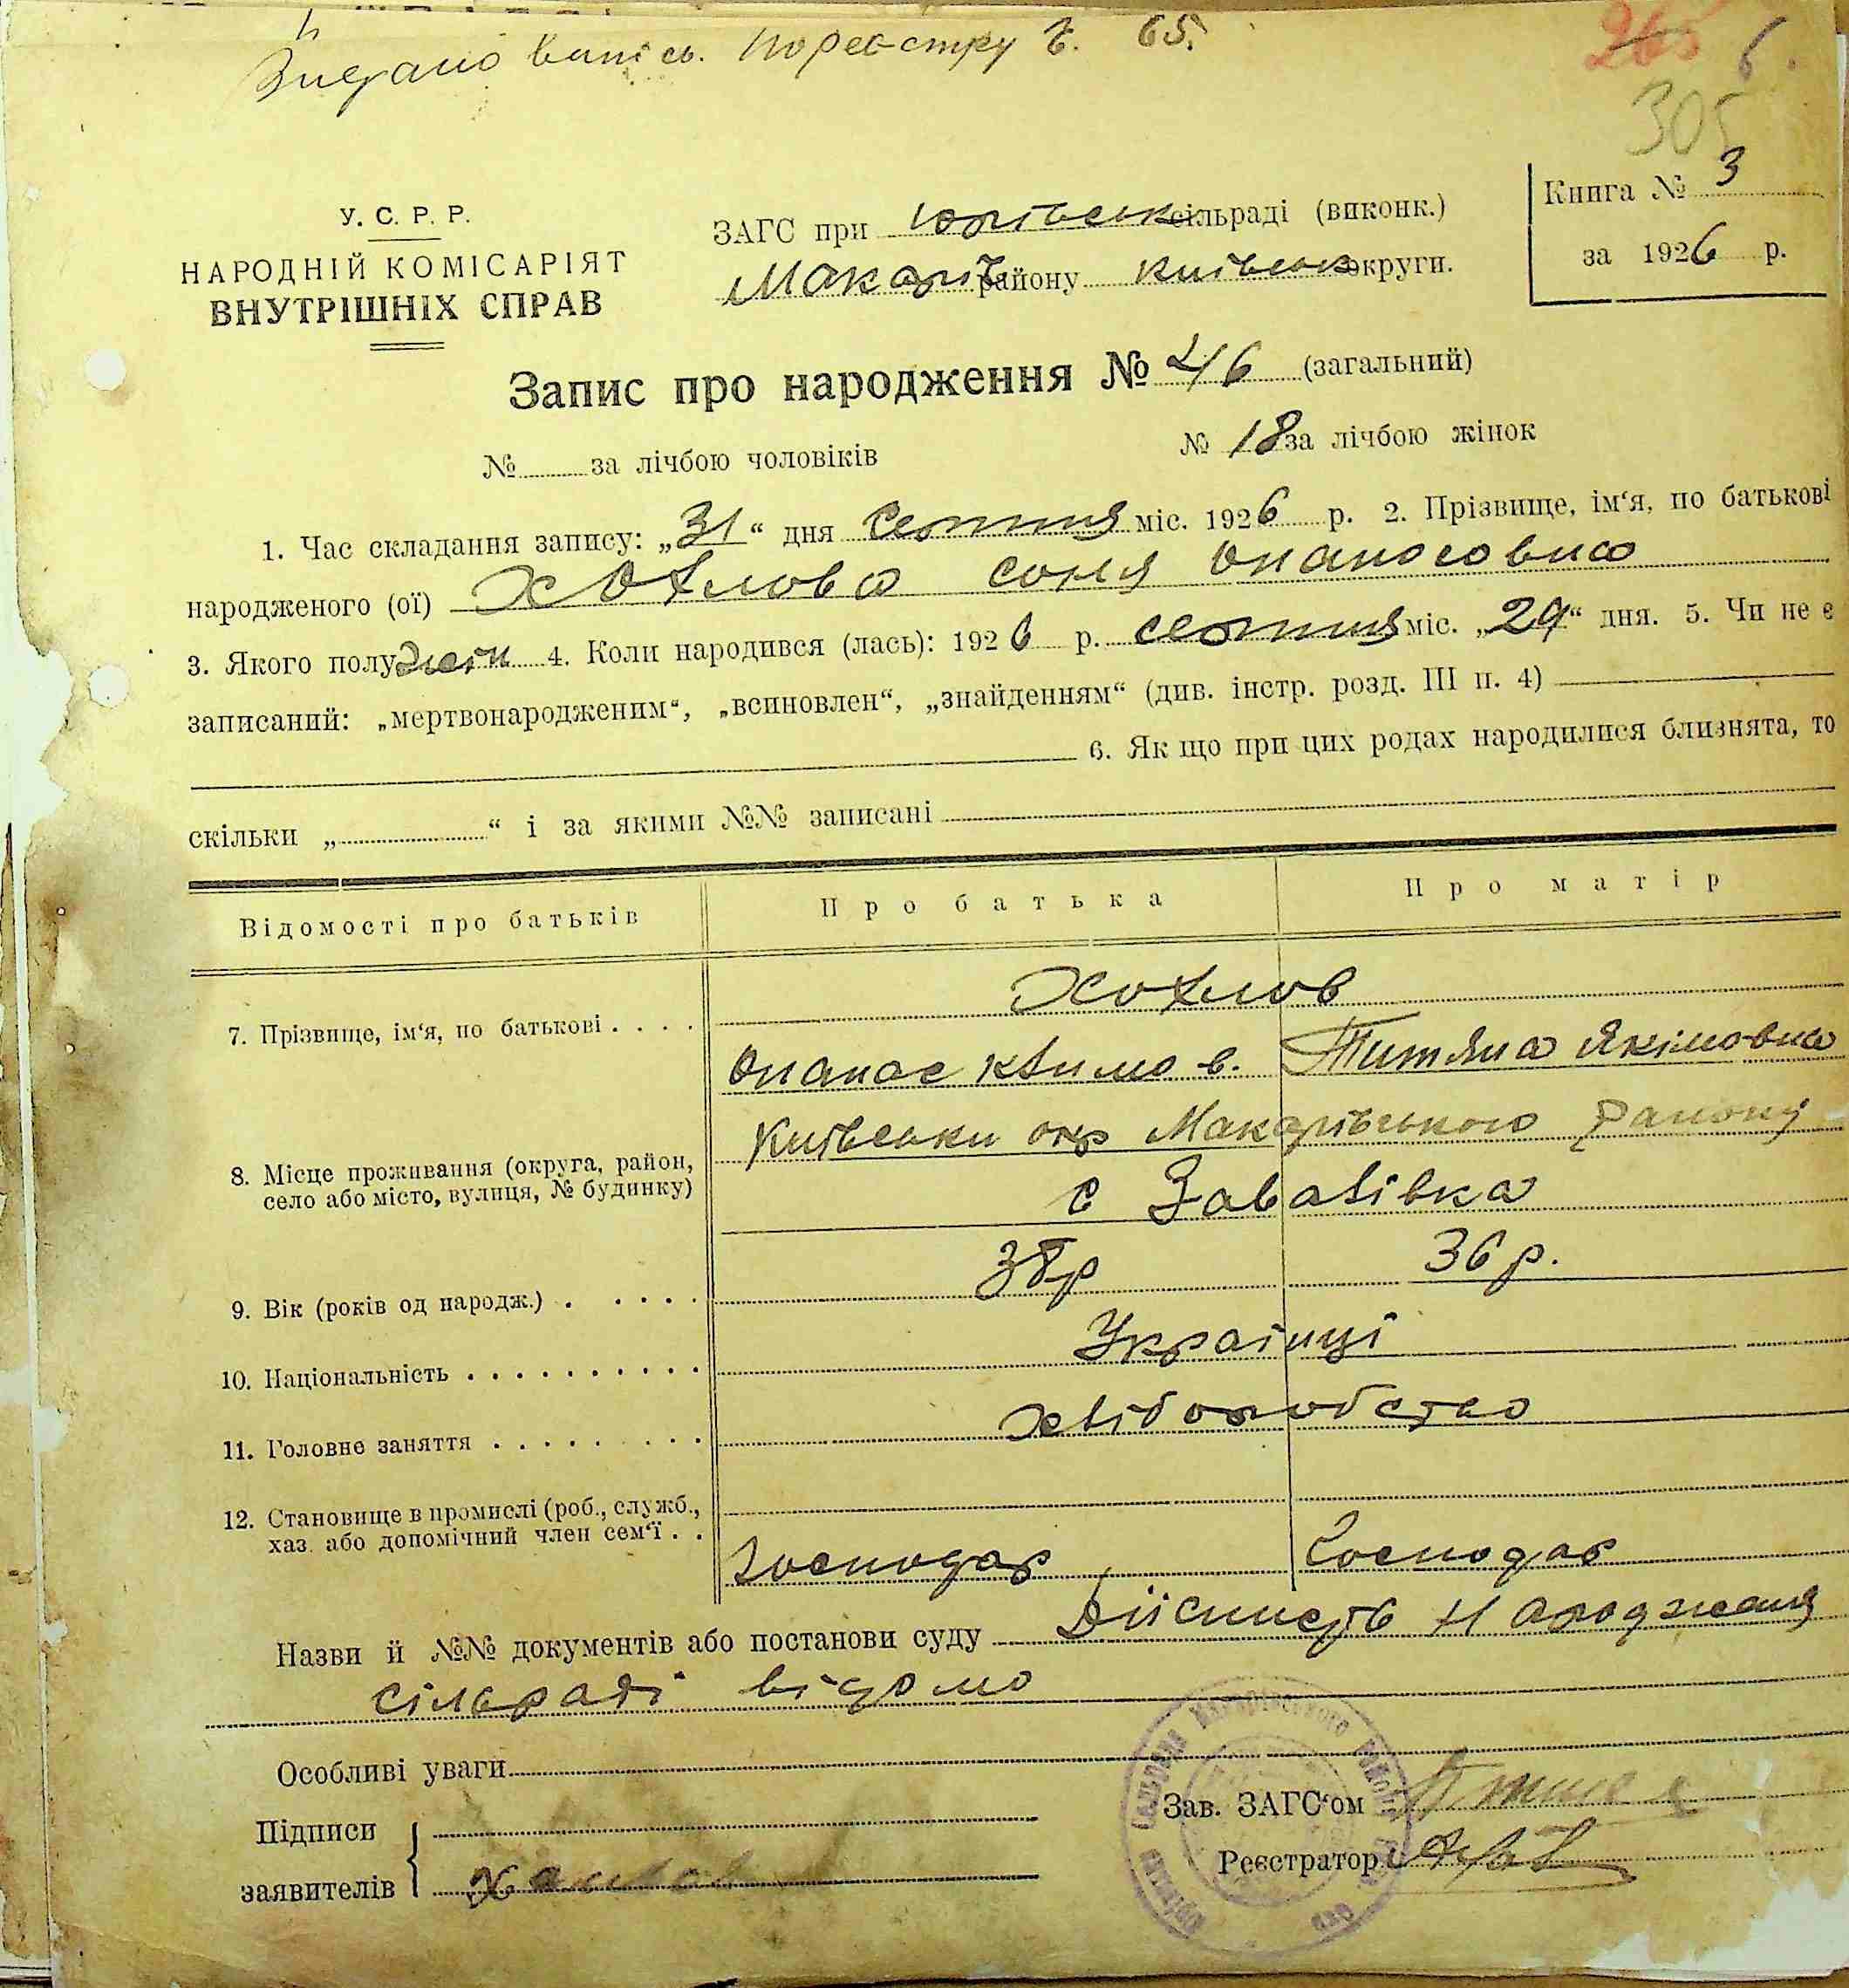 Видано випісь. По реєстру Ч. 65.
265 6.
305
У. С. Р. Р.
НАРОДНІЙ КОМІСАРІЯТ
ВНУТРІШНІХ СПРАВ
ЗАГС при Юрівськ сільраді (виконк.)
Макарів району Київськ округи.
Книга № 3
за 1926 р.
Запис про народження № 46 (загальний)
№ за лічбою чоловіків № 18 за лічбою жінок
1. Час складання запису: „31“ дня міс. 1926 р. 2. Прізвище, ім‘я, по батькові
народженого (ої) Хохлова Соня Опанасовна
3. Якого полу жін 4. Коли народився (лась): 1926 р. міс. „29“ дня. 5. Чи не є
записаний: „мертвонародженим“, „всиновлен“, „знайденням“ (див. інстр. розд. III п. 4)
6. Як що при цих родах народилися близнята, то
скільки „ “ і за якими №№ записані
Відомості про батьків Про батька Про матір
Хохлов
7. Прізвище, ім‘я, по батькові . . . .
Опанас Климов. Титяна Якімовна
Київськи окр Макарівського району
8. Місце проживання (округа, район,
село або місто, вулиця, № будинку)
с Завалівка
9. Вік (років од народж.) . . . . . 38р 36 р.
10. Національність . . . . . . . . . . Україці
11. Головне заняття . . . . . . . . . хліборобство
12. Становище в промислі (роб., служб.,
хаз. або допомічний член сем‘ї . .
Господар Господар
Назви й №№ документів або постанови суду Дійсність народження
сільраді відомо
Особливі уваги
Підписи
заявителів Хохлов
Зав. ЗАГС‘ом
Реєстратор
Юрівська Сільрада Макарівського Району Київ Окр